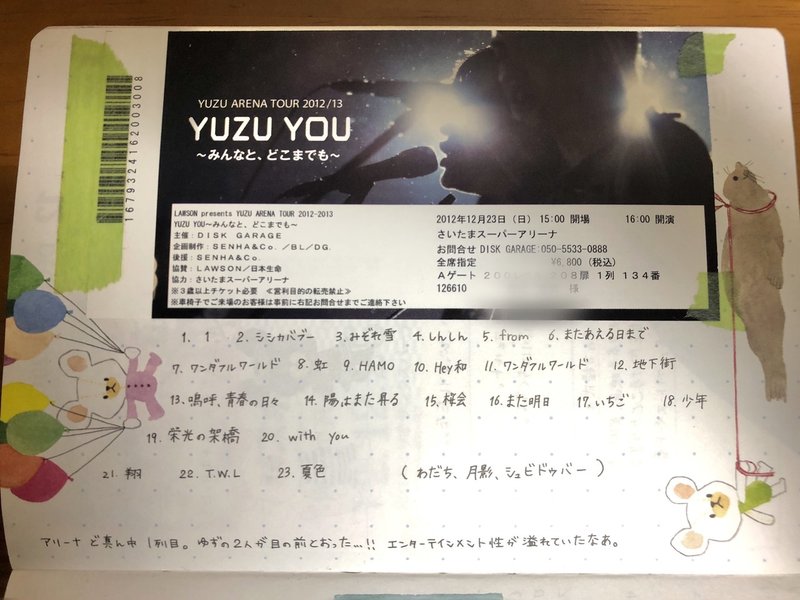 1679324162003008
YUZU ARENA TOUR 2012/13
YUZU YOU
～みんなと、どこまでも～
LAWSON presents YUZU ARENA TOUR 2012-2013
YUZU YOU～みんなと、どこまでも～
主催：DISK GARAGE
企画制作：SENHA&Co. /BL/DG.
後援：SENHA&Co.
協賛：LAWSON/日本生命
協力：さいたまスーパーアリーナ
※3歳以上チケット必要 ≪営利目的の転売禁止≫
※車椅子でご来場のお客様は事前に右記お問合せまでご連絡下さい
2012年12月23日（日） 15:00 開場 16:00 開演
さいたまスーパーアリーナ
お問合せ DISK GARAGE:050-5533-0888
全席指定 ¥6,800（税込）
Aゲート 208扉 1列 134番
126610 様
1. 1 2. シシカバブー 3. みぞれ雪 4. しんしん 5. from 6. またあえる日まで
7. ワンダフルワールド 8. 虹 9. HAMO 10. Hey和 11. ワンダフルワールド 12. 地下街
13. 嗚呼、青春の日々 14. 陽はまた昇る 15. 桜会 16. また明日 17. いちご 18. 少年
19. 栄光の架橋 20. with you
21. 翔 22. T.W.L 23. 夏色 (わだち、月影、シュビドゥバー)
アリーナど真ん中1列目。ゆずの2人が目の前とおった…!! エンターテインメント性が溢れていたなあ。